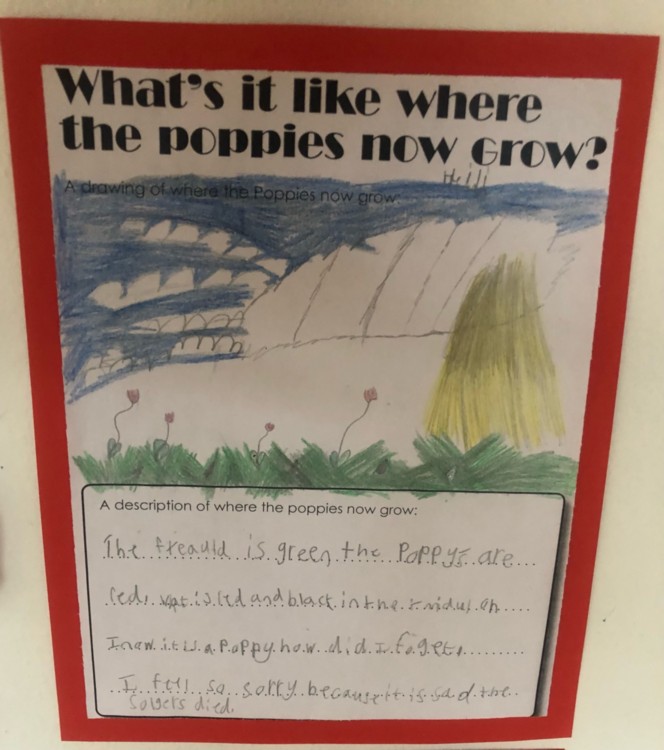 What's it like where
the poppies now Grow?
Hill
A drawing of where the Poppies now grow:
A description of where the poppies now grow:
The freauld is green the Poppys are
red. wot is red and black in the midul oh
I now it is a Poppy how did I foget.
I fell so sorry because it is sad the
solgers died.